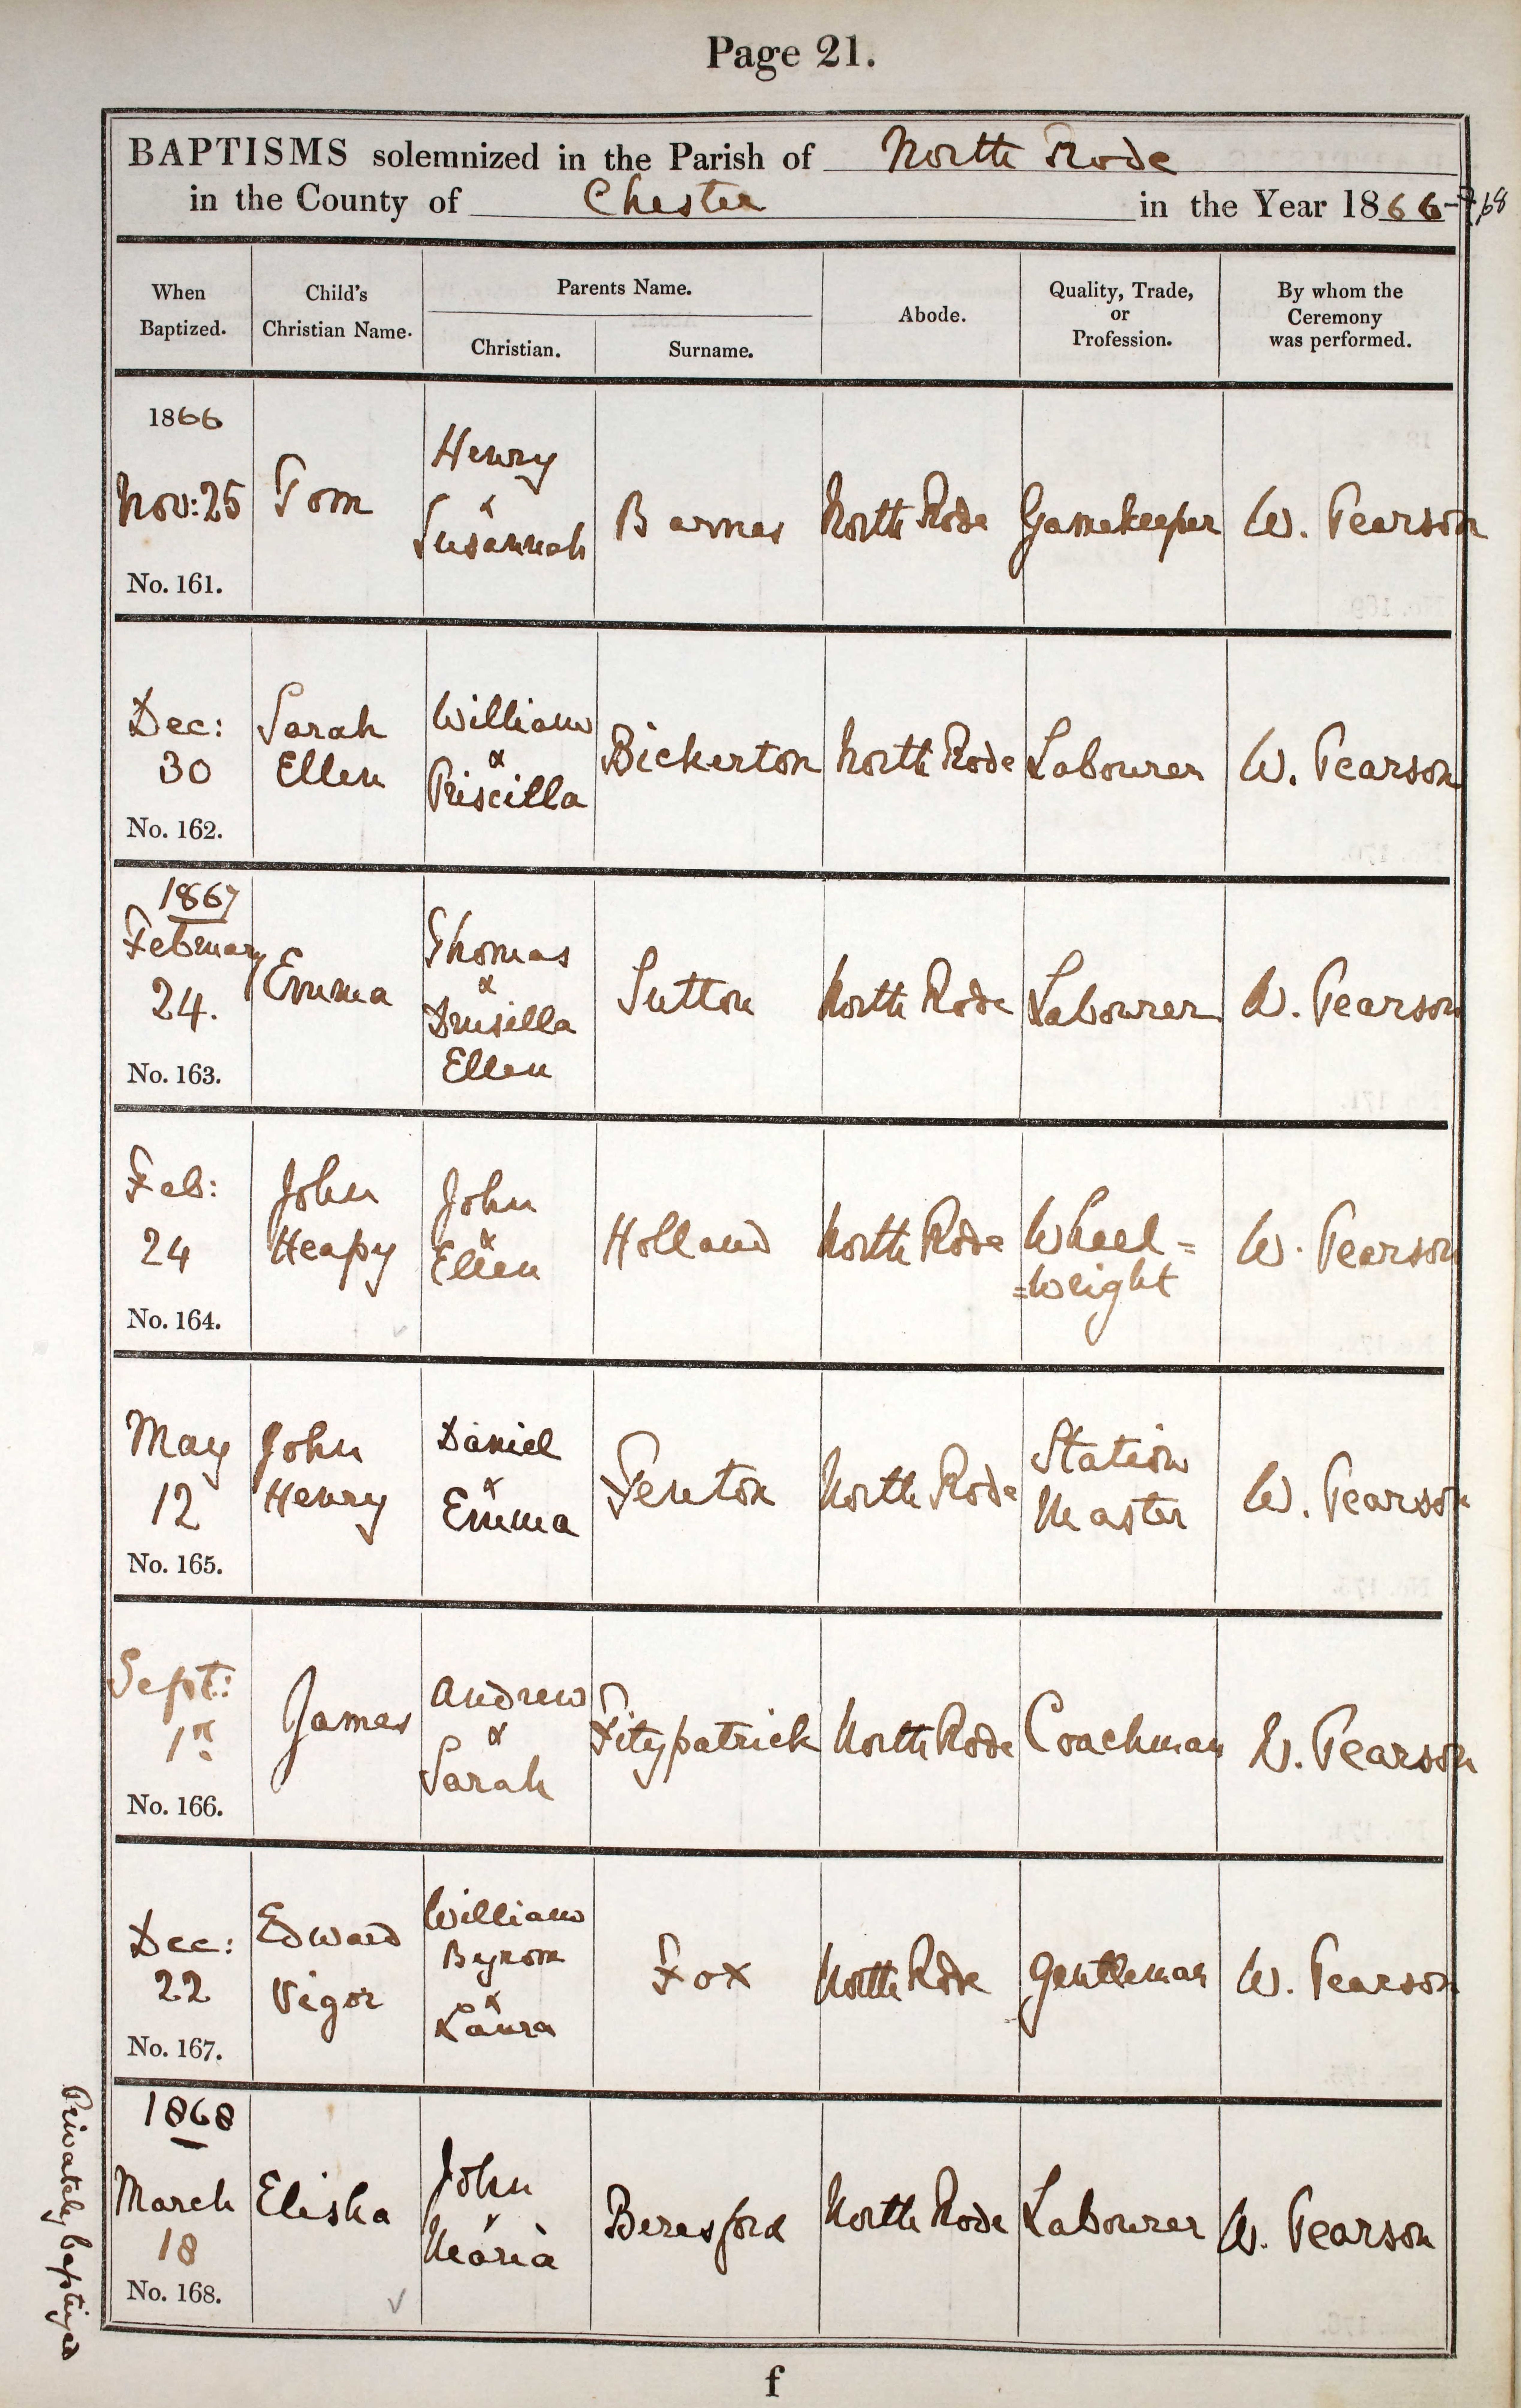 Page 21.
BAPTISMS solemnized in the Parish of North Rode
in the County of Chester in the Year 1866-7,68
When
Baptized.
Child's
Christian Name.
Parents Name.
Christian.
Surname.
Abode.
Quality, Trade,
or
Profession.
By whom the
Ceremony
was performed.
1866
Nov: 25
No. 161.
Tom
Henry
&
Susannah
Barnes
North Rode
Gamekeeper
W. Pearson
Dec:
30
No. 162.
Sarah
Ellen
William
&
Priscilla
Bickerton
North Rode
Labourer
W. Pearson
1867
February
24.
No. 163.
Emma
Thomas
&
Drusilla
Ellen
Sutton
North Rode
Labourer
W. Pearson
Feb:
24
No. 164.
John
Heapy
John
&
Ellen
Holland
North Rode
Wheel=
=wright
W. Pearson
May
12
No. 165.
John
Henry
Daniel
&
Emma
Fenton
North Rode
Station
Master
W. Pearson
Sept:
1st
No. 166.
James
Andrew
&
Sarah
Fitzpatrick
North Rode
Coachman
W. Pearson
Dec:
22
No. 167.
Edward
Vigor
William
Byrom
&
Laura
Fox
North Rode
Gentleman
W. Pearson
Privately baptized
1868
March
18
No. 168.
Elisha
John
&
Maria
Beresford
North Rode
Labourer
W. Pearson
f